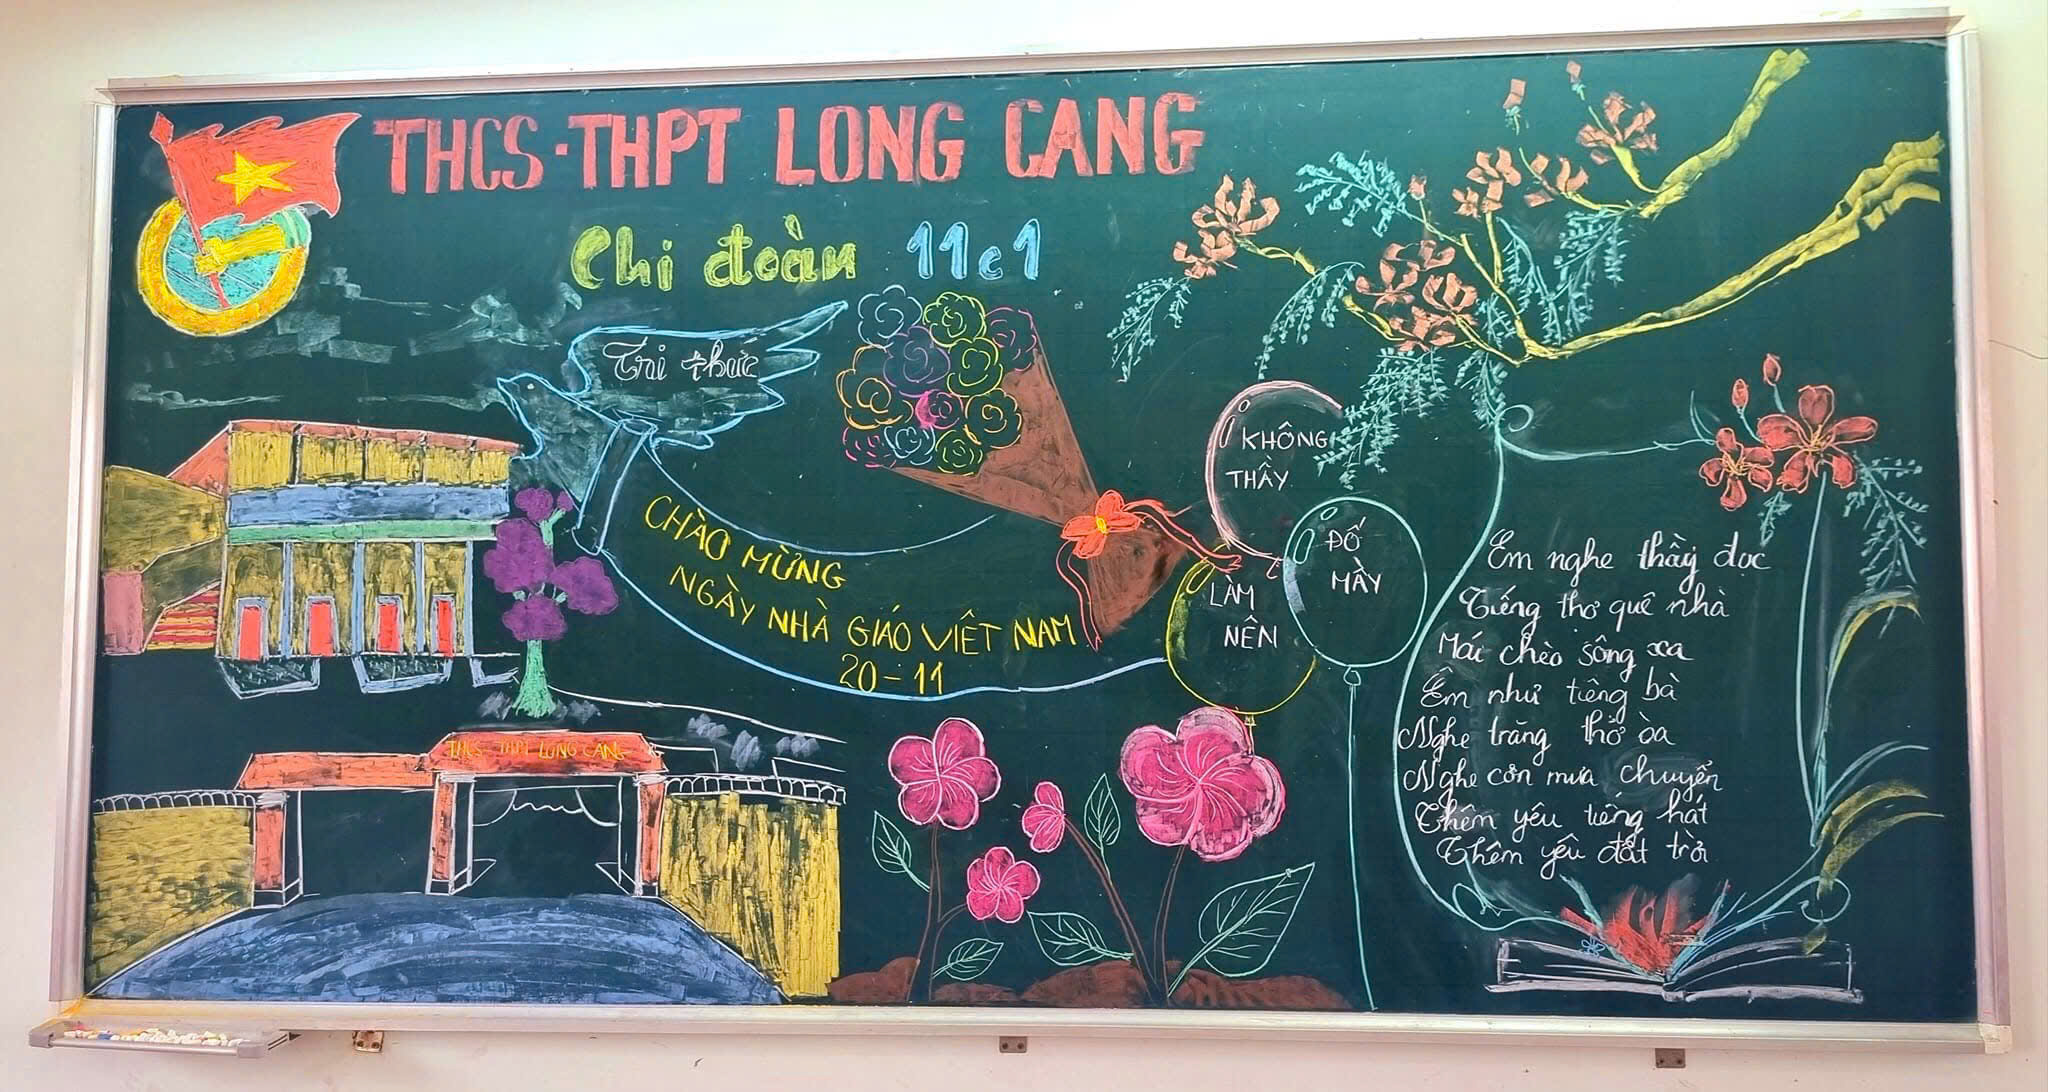 THCS-THPT LONG CANG
Chi đoàn 11c1
Tri thức
CHÀO MỪNG
NGÀY NHÀ GIÁO VIỆT NAM
20-11
KHÔNG
THẦY
ĐỐ
MÀY
LÀM
NÊN
Em nghe thầy đọc
Tiếng thơ quê nhà
Mái chèo sông xa
Êm như tiếng bà
Nghe trăng thở òa
Nghe cơn mưa chuyển
Thêm yêu tiếng hát
Thêm yêu đất trời
THCS THPT LONG CANG